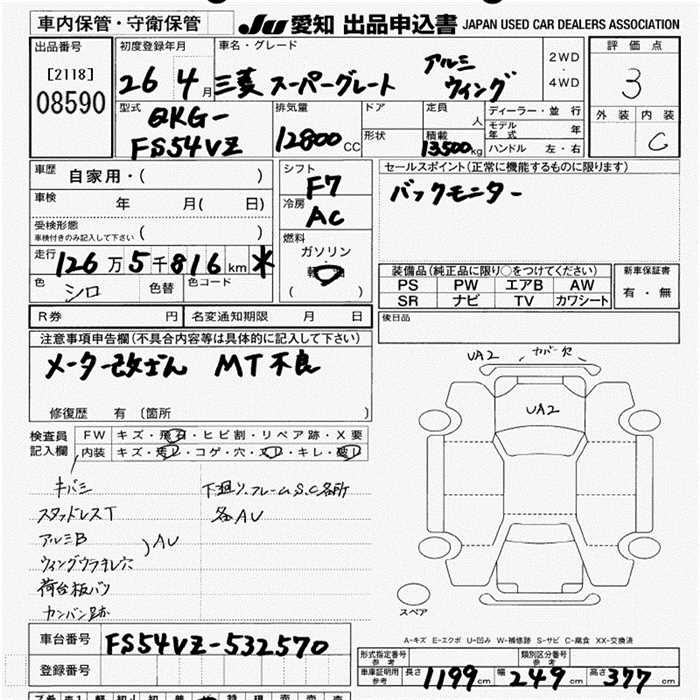 車内保管・守衛保管
JU 愛知 出品申込書 JAPAN USED CAR DEALERS ASSOCIATION
出品番号
[2118]
08590
初度登録年月
26 4月
車名・グレード
三菱 スーパーグレート アルミウィング
2WD
4WD
評価点
3
外装 内装
C
型式
QKG-
FS54VZ
排気量
12800cc
ドア
形状
定員
人
積載
13500kg
ディーラー・並行
モデル年式 年
ハンドル 左・右
車歴
自家用・( )
車検
年 月( 日)
受検形態
車検付きのみ記入して下さい ( )
走行
126万5千816km *
色
シロ
色替
色コード
シフト
F7
冷房
AC
燃料
ガソリン
( )
セールスポイント(正常に機能するものに限ります)
バックモニター
装備品(純正品に限り○をつけてください)
PS PW エアB AW
SR ナビ TV カワシート
新車保証書
有・無
後日品
R券 円 名変通知期限 月 日
注意事項申告欄(不具合内容等は具体的に記入して下さい)
メーター改ざん MT不良
修復歴 有 〔箇所 〕
検査員記入欄
FW キズ・飛石・ヒビ割・リペア跡・X要
内装 キズ・汚レ・コゲ・穴・スレ・キレ・破レ
キバミ
スタッドレスT
アルミB
ウィングウラキレ穴
荷台板バツ
カンバン跡
)AU
下廻り、フレームS.C各所
各AU
UA2 カバー欠
UA2
スペア
A-キズ E-エクボ U-凹み W-補修跡 S-サビ C-腐食 XX-交換済
車台番号
FS54VZ-532570
登録番号
形式指定番号
参考
類別区分番号
参考
車庫証明用
参考
長さ 1199cm 幅 249cm 高さ 377cm